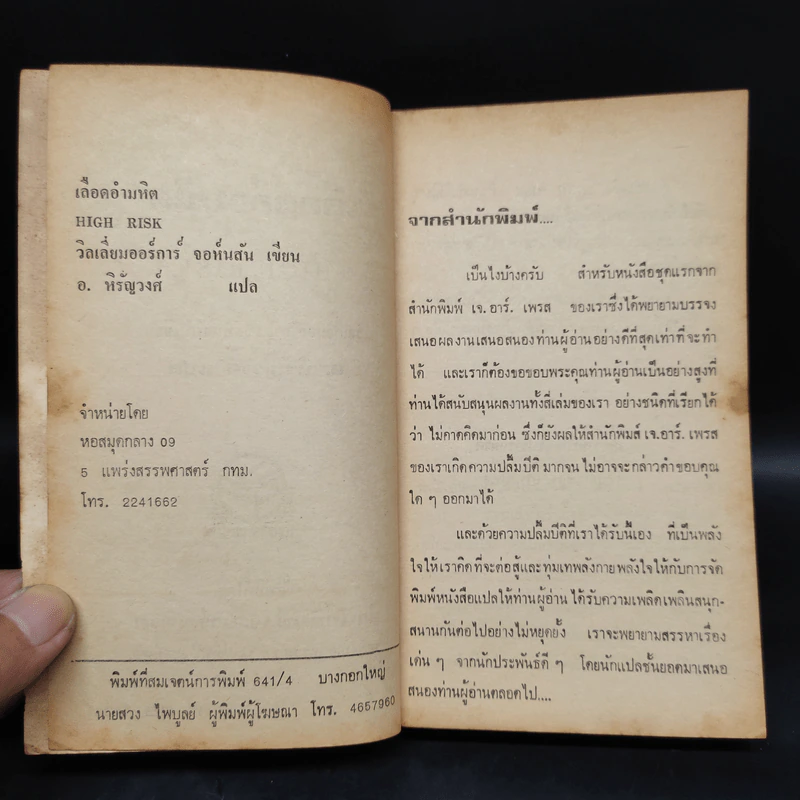 เลือดอำมหิต
HIGH RISK
วิลเลี่ยมออร์การ์ จอห์นสัน เขียน
อ. หิรัญวงศ์ แปล
จำหน่ายโดย
หอสมุดกลาง 09
5 แพร่งสรรพศาสตร์ กทม.
โทร. 2241662
พิมพ์ที่สมเจตน์การพิมพ์ 641/4 บางกอกใหญ่
นายสวง ไพบูลย์ ผู้พิมพ์ผู้โฆษณา โทร. 4657960
จากสำนักพิมพ์....
เป็นไงบ้างครับ สำหรับหนังสือชุดแรกจาก
สำนักพิมพ์ เจ.อาร์. เพรส ของเราซึ่งได้พยายามบรรจง
เสนอผลงานเสนอสนองท่านผู้อ่านอย่างดีที่สุดเท่าที่จะทำ
ได้ และเราก็ต้องขอขอบพระคุณท่านผู้อ่านเป็นอย่างสูงที่
ท่านได้สนับสนุนผลงานทั้งสี่เล่มของเรา อย่างชนิดที่เรียกได้
ว่า ไม่คาดคิดมาก่อน ซึ่งก็ยังผลให้สำนักพิมส์ เจ.อาร์. เพรส
ของเราเกิดความปลื้มปีติ มากจน ไม่อาจจะกล่าวคำขอบคุณ
ใด ๆ ออกมาได้
และด้วยความปลื้มปีติที่เราได้รับนี้เอง ที่เป็นพลัง
ใจให้เราคิดที่จะต่อสู้และทุ่มเทพลังกายพลังใจให้กับการจัด
พิมพ์หนังสือแปลให้ท่านผู้อ่าน ได้รับความเพลิดเพลินสนุก-
สนานกันต่อไปอย่างไม่หยุดยั้ง เราจะพยายามสรรหาเรื่อง
เด่น ๆ จากนักประพันธ์ดี ๆ โดยนักแปลชั้นยอดมาเสนอ
สนองท่านผู้อ่านตลอดไป....